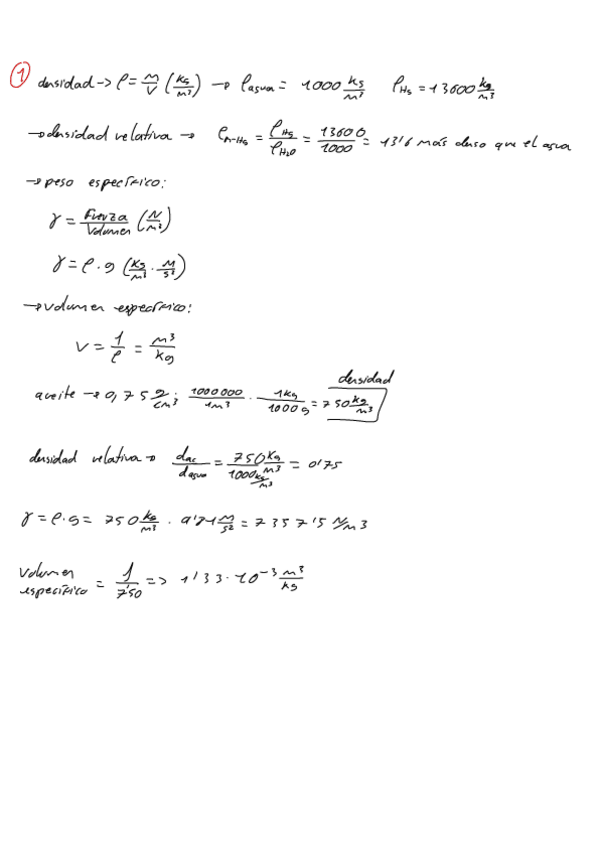 ① densidad -> ρ = M/V (kg/m³) -> ρagua = 1000 kg/m³ ρHg = 13600 kg/m³
-> densidad relativa -> ρr-Hg = ρHg/ρH2O = 13600/1000 = 13'6 más denso que el agua
-> peso específico:
γ = Fuerza/Volumen (N/m³)
γ = ρ · g (kg/m³ · M/s²)
-> volumen específico:
V = 1/ρ = m³/kg
densidad
aceite -> 0,75 g/cm³ ; 1000000/1m³ · 1kg/1000g = 750 kg/m³
densidad relativa -> dac/dagua = 750 kg/m³ / 1000 kg/m³ = 0'75
γ = ρ · g = 750 kg/m³ · 9'81 M/s² = 7357'5 N/m3
Volumen específico = 1/750 => 1'33 · 10⁻³ m³/kg